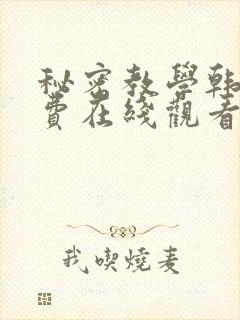 秘密教學韩
費在綫觀看
我喫燒麦